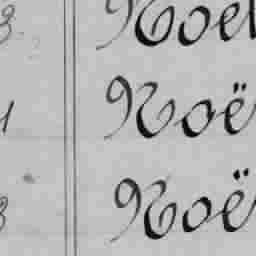 3 Noël
1 Noë
3 Noë